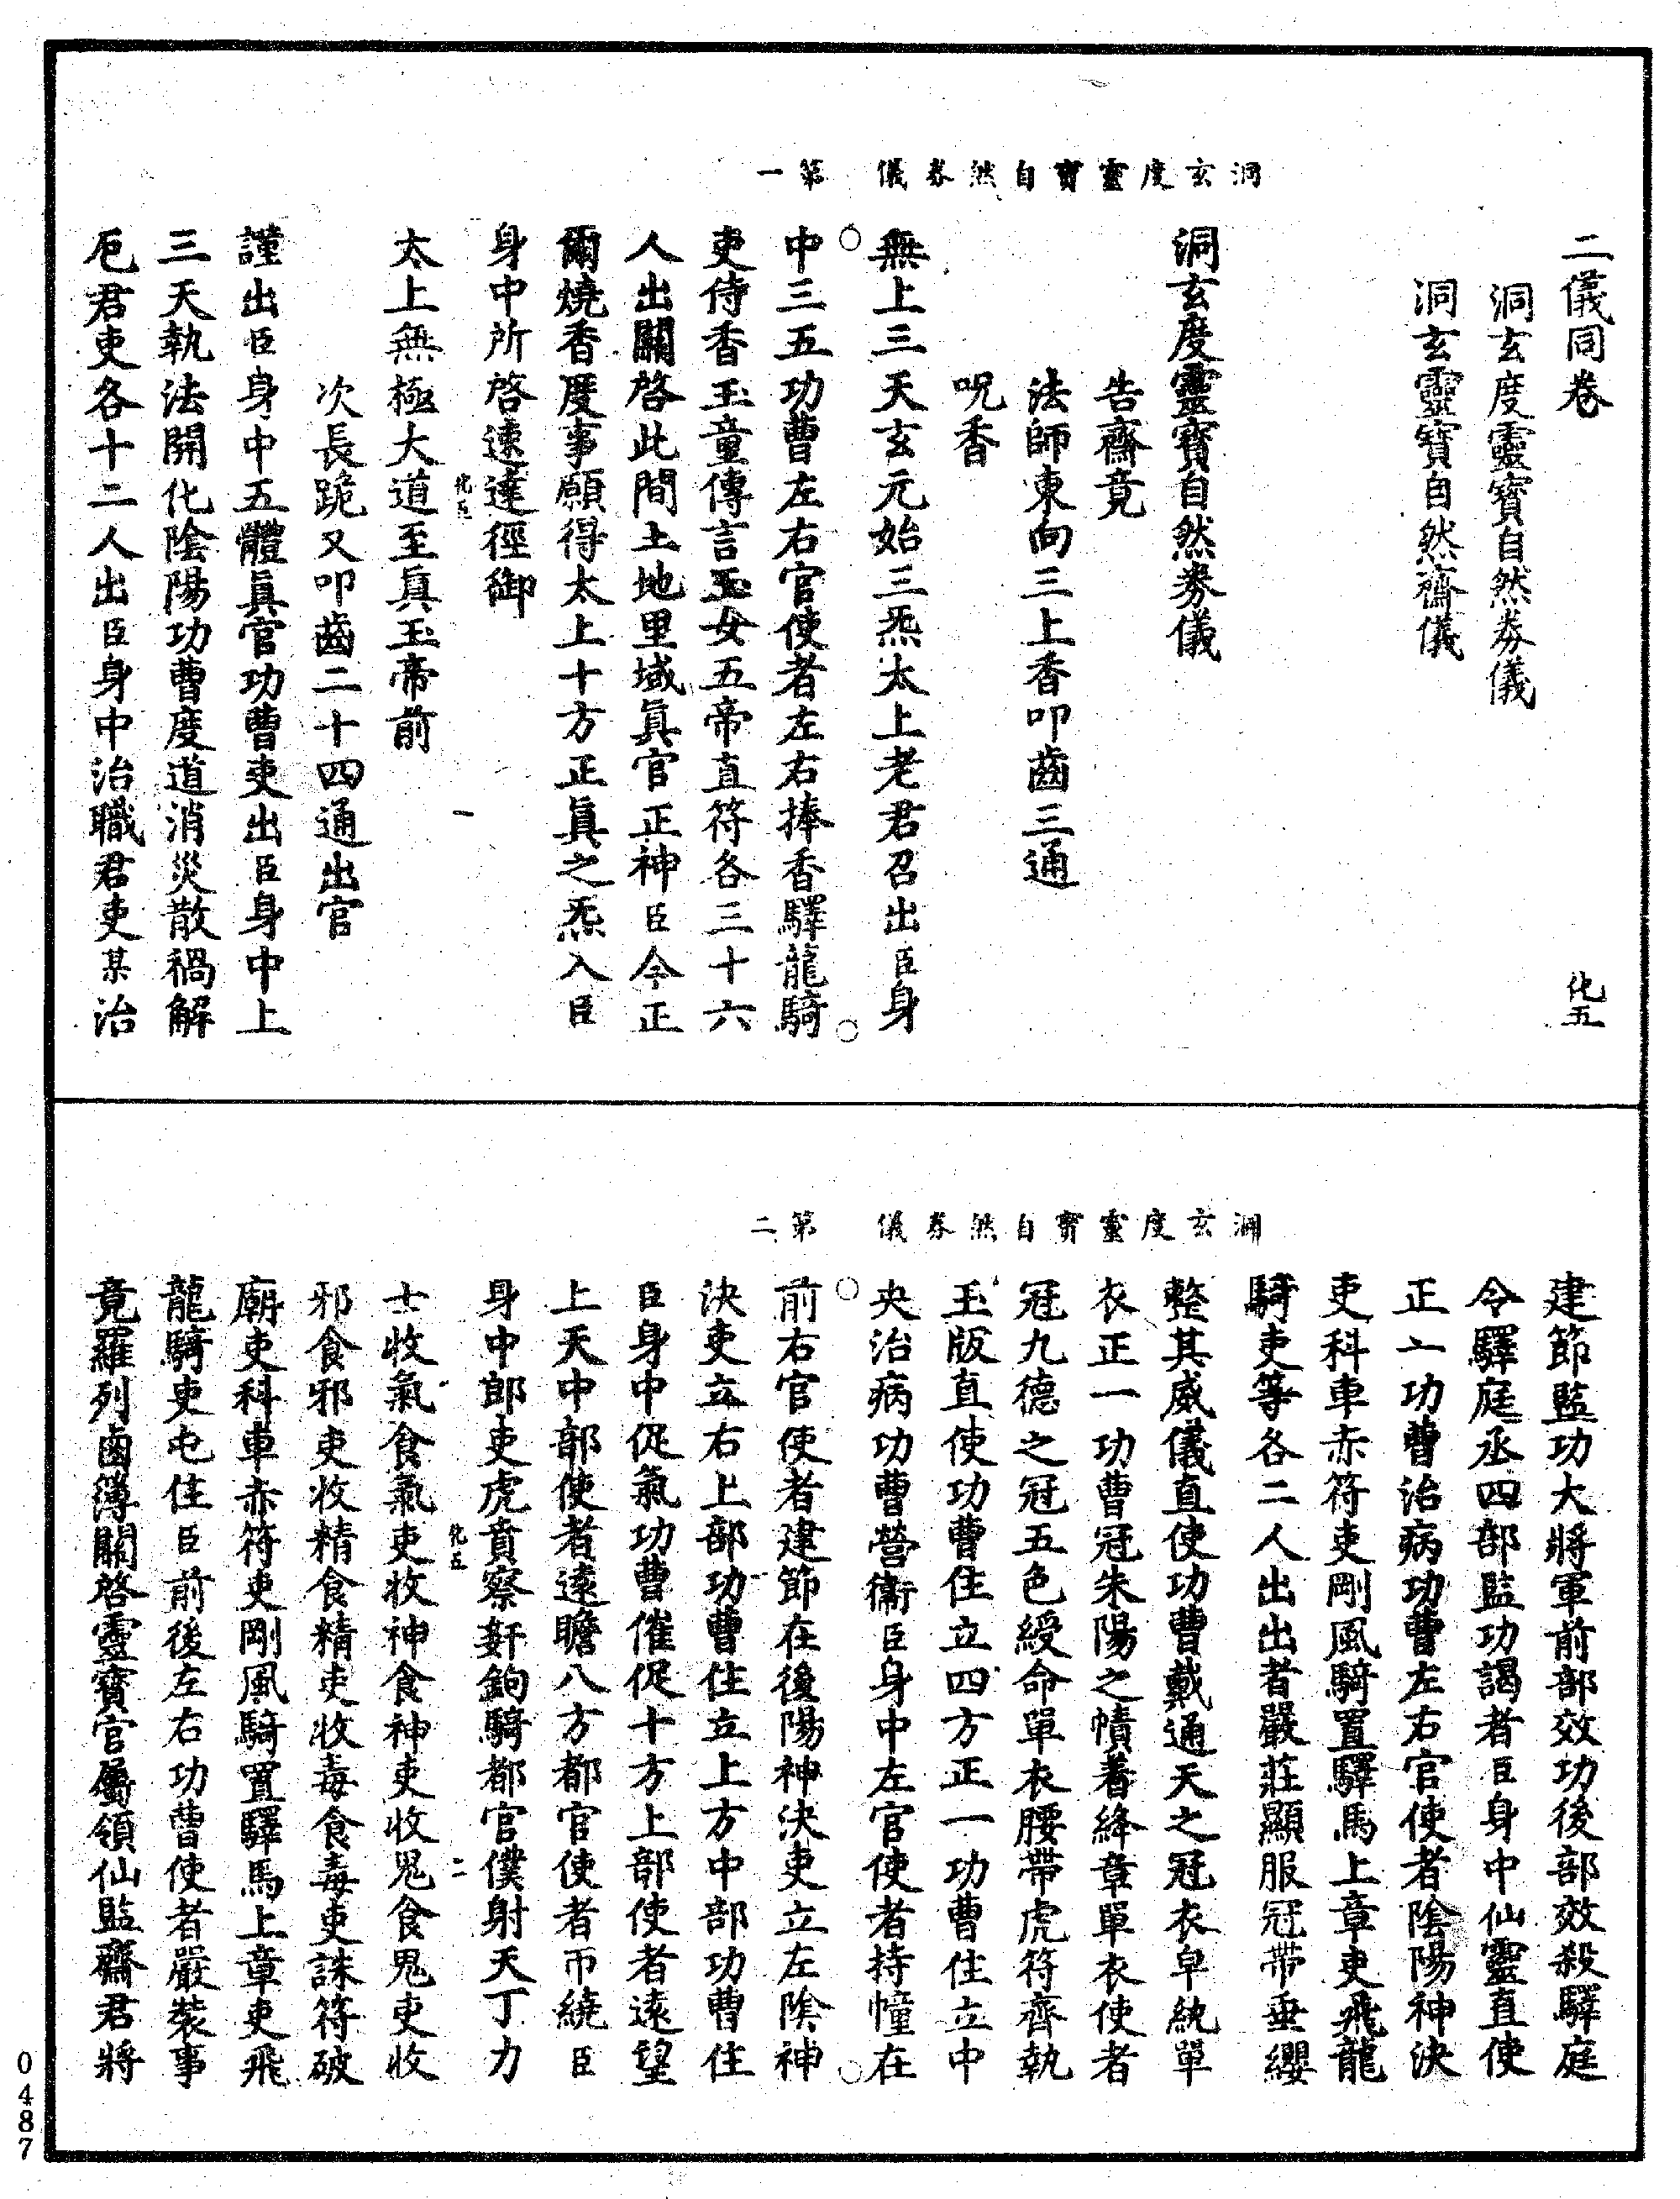 洞玄度靈寶自然券儀　第一
二儀同卷　化五
洞玄度靈寶自然券儀
洞玄靈寶自然齋儀
洞玄度靈寶自然券儀
告齋竟
法師東向三上香叩齒三通
呪香
無上三天玄元始三炁太上老君召出臣身
中三五功曹左右官使者左右捧香驛龍騎
吏侍香玉童傳言玉女五帝直符各三十六
人出關啓此間土地里域眞官正神臣今正
爾燒香度事願得太上十方正眞之炁入臣
身中所啓速達徑御
化五　一
太上無極大道至眞玉帝前
次長跪又叩齒二十四通出官
謹出臣身中五體眞官功曹吏出臣身中上
三天執法開化陰陽功曹度道消災散禍解
厄君吏各十二人出臣身中治職君吏某治
洞玄度靈寶自然券儀　第二
建節監功大將軍前部效功後部效殺驛庭
令驛庭丞四部監功謁者臣身中仙靈直使
正一功曹治病功曹左右官使者陰陽神決
吏科車赤符吏剛風騎置驛馬上章吏飛龍
騎吏等各二人出出者嚴莊顯服冠帶垂纓
整其威儀直使功曹戴通天之冠衣皁紈單
衣正一功曹冠朱陽之幘著絳章單衣使者
冠九德之冠五色綬命單衣腰帶虎符齊執
玉版直使功曹住立四方正一功曹住立中
央治病功曹營衞臣身中左官使者持幢在
前右官使者建節在後陽神決吏立左陰神
決吏立右上部功曹住立上方中部功曹住
臣身中促氣功曹催促十方上部使者遠望
上天中部使者遠瞻八方都官使者帀繞臣
身中郎吏虎賁察姧鉤騎都官僕射天丁力
化五　二
士收氣食氣吏收神食神吏收鬼食鬼吏收
邪食邪吏收精食精吏收毒食毒吏誅符破
廟吏科車赤符吏剛風騎置驛馬上章吏飛
龍騎吏屯住臣前後左右功曹使者嚴裝事
竟羅列鹵簿關啓靈寶官屬領仙監齋君將
0487